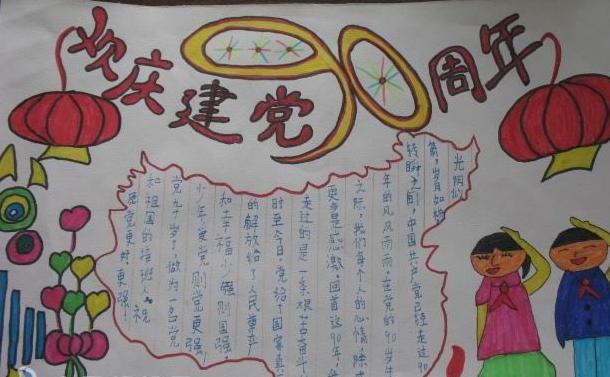 欢庆建党90周年
光阴似
箭，岁月如梭，
转瞬之间，中国共产党已经走过90
年的风风雨雨。在党的90岁生
之际，我们每个人的心情，除
更多是感激。回首这90年，
走过的是一条艰苦奋斗
时至今日，党给了国家真
的解放给了人民尊严
和幸福少强则国强，
少年爱党则党更强，
党九十岁了，做为一名党
和祖国的接班人，祝
愿党更好，更强！